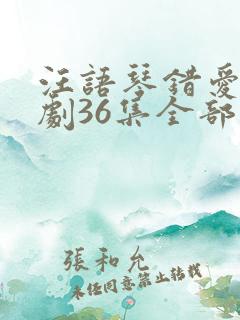 汪語琴錯愛
劇36集全部
張和允
未經同意禁止轉載